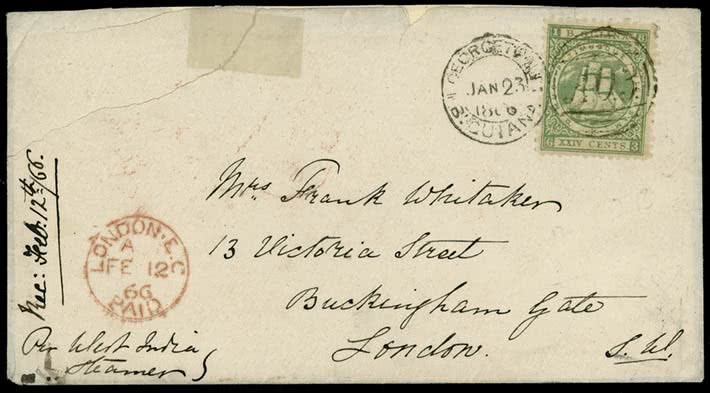 GEORGETOWN
JAN 23
1866
BR. GUIANA
1 B. GUIANA 8
6 XXIV CENTS 3
A01
Mrs Frank Whitaker
13 Victoria Street
Buckingham Gate
London. S.W.
Rec: Feb: 12th/66.
LONDON·E.C
A
FE 12
66
PAID
Per West India
Steamer